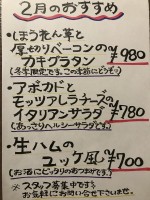 2月のおすすめ
・ほうれん草と
厚切りベーコンの
カキグラタン ¥980
(冬季限定です。この季節にどうぞ)
・アボカドと
モッツァレラチーズの
イタリアンサラダ ¥780
(あっさりヘルシーサラダです。)
・生ハムの
ユッケ風 ¥700
(お酒にピッタリのおつまみです。)
※スタッフ募集中です
お気軽にお問い合せ下さいませ。